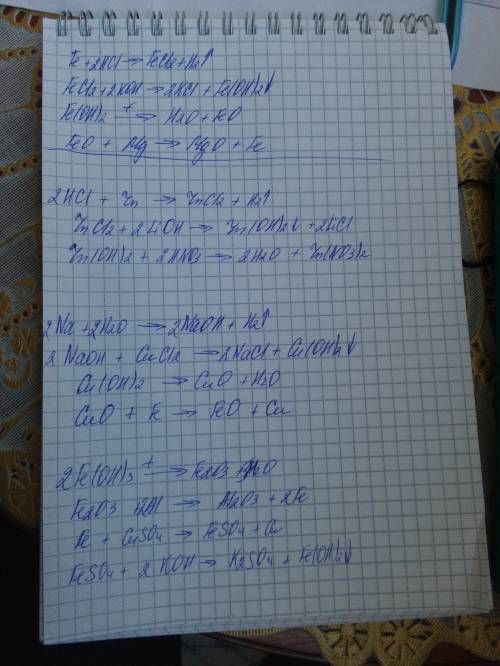 Fe + 2HCl → FeCl2 + H2↑
FeCl2 + 2KOH → 2KCl + Fe(OH)2↓
Fe(OH)2 —t→ H2O + FeO
FeO + Mg → MgO + Fe
2HCl + Zn → ZnCl2 + H2↑
ZnCl2 + 2LiOH → Zn(OH)2↓ + 2LiCl
Zn(OH)2 + 2HNO3 → 2H2O + Zn(NO3)2
2Na + 2H2O → 2NaOH + H2↑
2NaOH + CuCl2 → 2NaCl + Cu(OH)2↓
Cu(OH)2 → CuO + H2O
CuO + Fe → FeO + Cu
2Fe(OH)3 —t→ Fe2O3 + 3H2O
Fe2O3 + 2Al → Al2O3 + 2Fe
Fe + CuSO4 → FeSO4 + Cu
FeSO4 + 2KOH → K2SO4 + Fe(OH)2↓